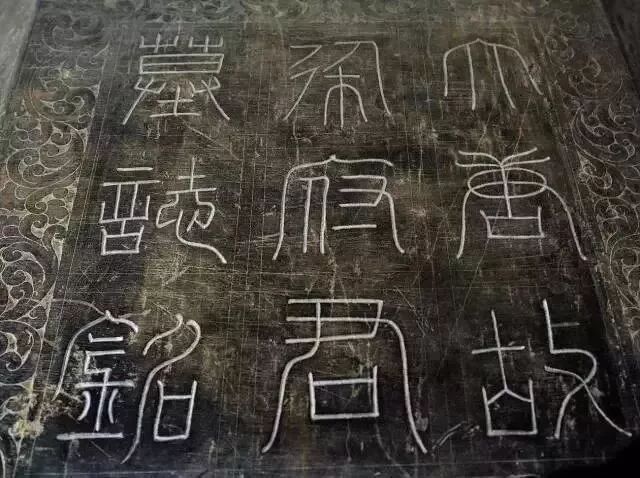 大唐故
府君
墓誌銘